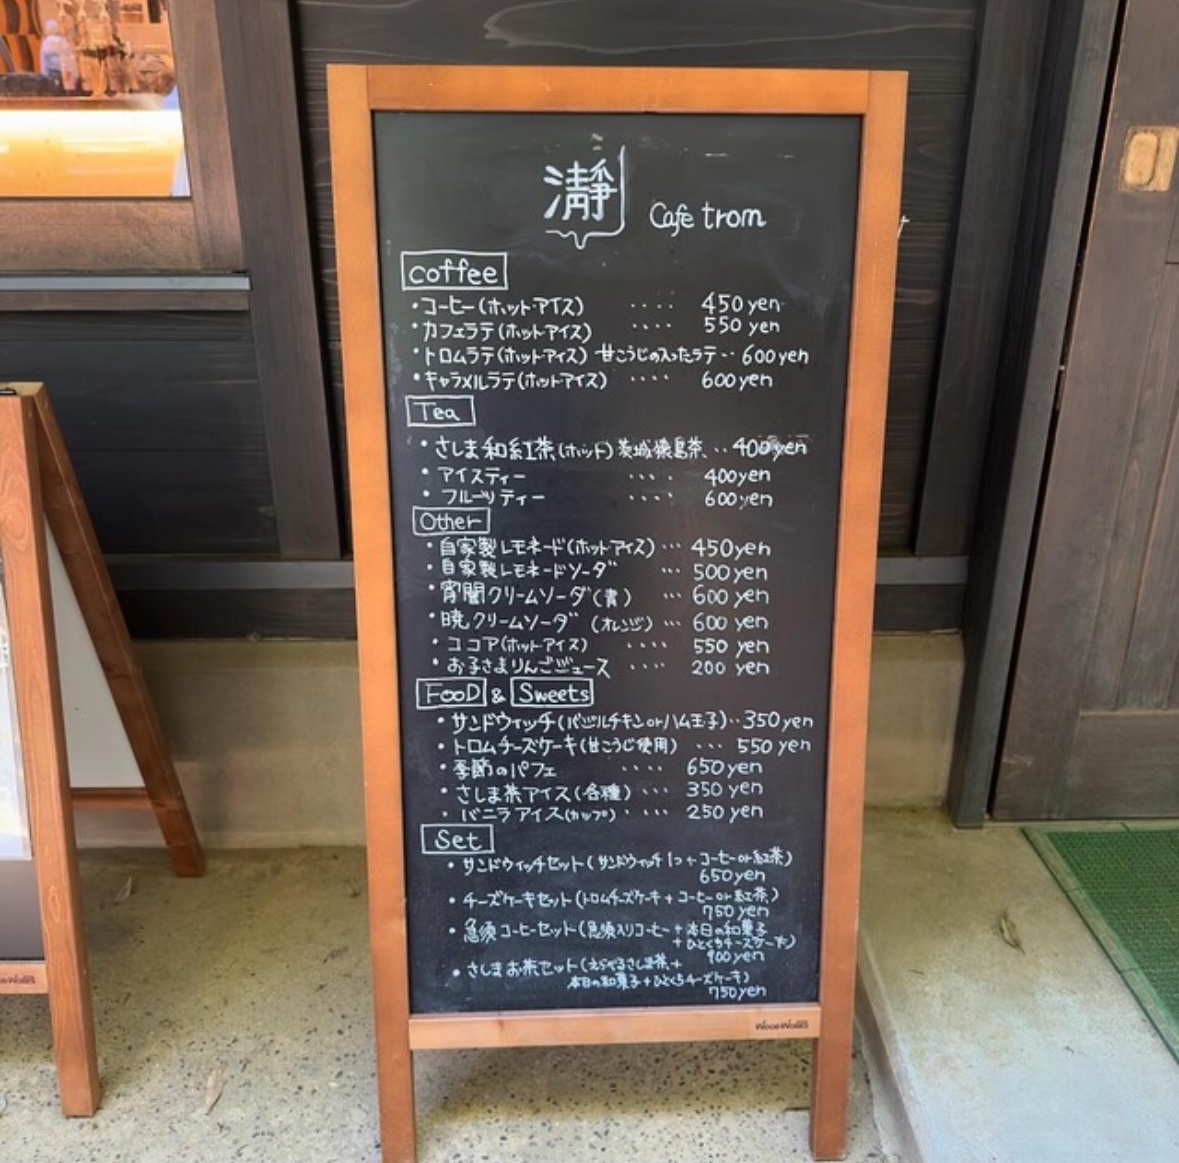 瀞 Cafe trom
coffee
・コーヒー(ホット・アイス) ・・・・ 450yen
・カフェラテ(ホット・アイス) ・・・・ 550yen
・トロムラテ(ホット・アイス) 甘こうじの入ったラテ・・600yen
・キャラメルラテ(ホット・アイス) ・・・・ 600yen
Tea
・さしま和紅茶(ホット)茨城猿島茶・・・400yen
・アイスティー ・・・・ 400yen
・フルーツティー ・・・・ 600yen
Other
・自家製レモネード(ホット・アイス)・・・450yen
・自家製レモネードソーダ ・・・ 500yen
・宵闇クリームソーダ(青) ・・・ 600yen
・暁クリームソーダ (オレンジ)・・・600yen
・ココア(ホット・アイス) ・・・・ 550yen
・お子さまりんごジュース ・・・・ 200yen
FOOD & Sweets
・サンドウィッチ(バジルチキンorハム玉子)・・350yen
・トロムチーズケーキ(甘こうじ使用) ・・・ 550yen
・季節のパフェ ・・・・ 650yen
・さしま茶アイス(各種)・・・ 350yen
・バニラアイス(カップ)・・・ 250yen
Set
・サンドウィッチセット(サンドウィッチ1つ+コーヒーor紅茶)
650yen
・チーズケーキセット(トロムチーズケーキ+コーヒーor紅茶)
750yen
・急須コーヒーセット(急須入りコーヒー+本日の和菓子
+ひとくちチーズケーキ)
900yen
・さしまお茶セット(えらべるさしま茶+
本日の和菓子+ひとくちチーズケーキ)
750yen
WoodWorks